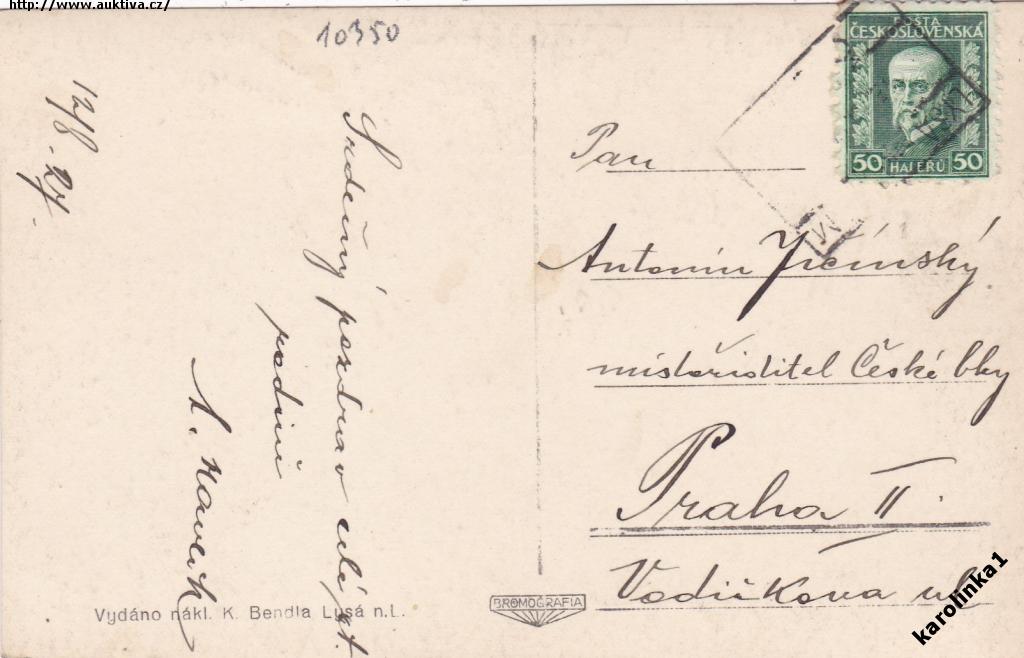 http://www.auktiva.cz/
10350
12/8. 27.
Srdečný pozdrav celé ct.
rodině
Vydáno nákl. K. Bendla Lysá n.L.
BROMOGRAFIA
POŠTA
ČESKOSLOVENSKÁ
50 HALÉŘŮ 50
Pan
Antonín Jičínský
místořiditel České bky
Praha II.
Vodičkova ul
karolinka1